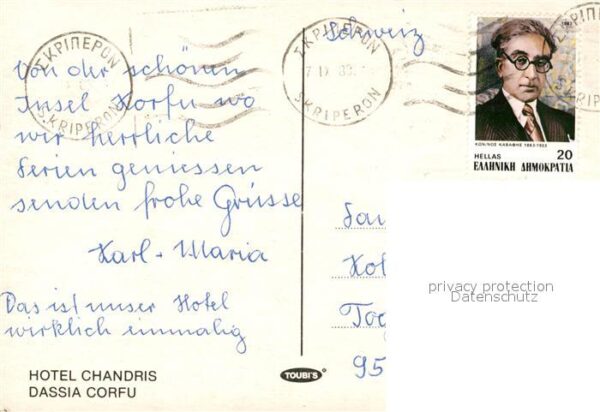 ΣΚΡΙΠΕΡΟΝ
SKRIPERON
ΣΚΡΙΠΕΡΟΝ
SKRIPERON
Schweiz
Von der schönen
Insel Korfu wo
wir herrliche
Ferien geniessen
senden frohe Grüsse
Karl + Maria
Das ist unser Hotel
wirklich einmalig
HOTEL CHANDRIS
DASSIA CORFU
TOUBI'S
ΚΩΝ/ΝΟΣ ΚΑΒΑΦΗΣ 1863-1933
HELLAS 20
ΕΛΛΗΝΙΚΗ ΔΗΜΟΚΡΑΤΙΑ
95
privacy protection
Datenschutz